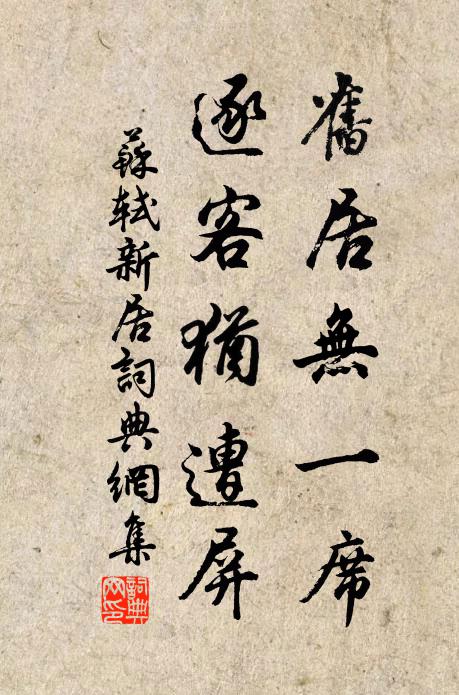 舊居無一席
逐客猶遭屏
蘇軾新居詞典網集
詞典網印